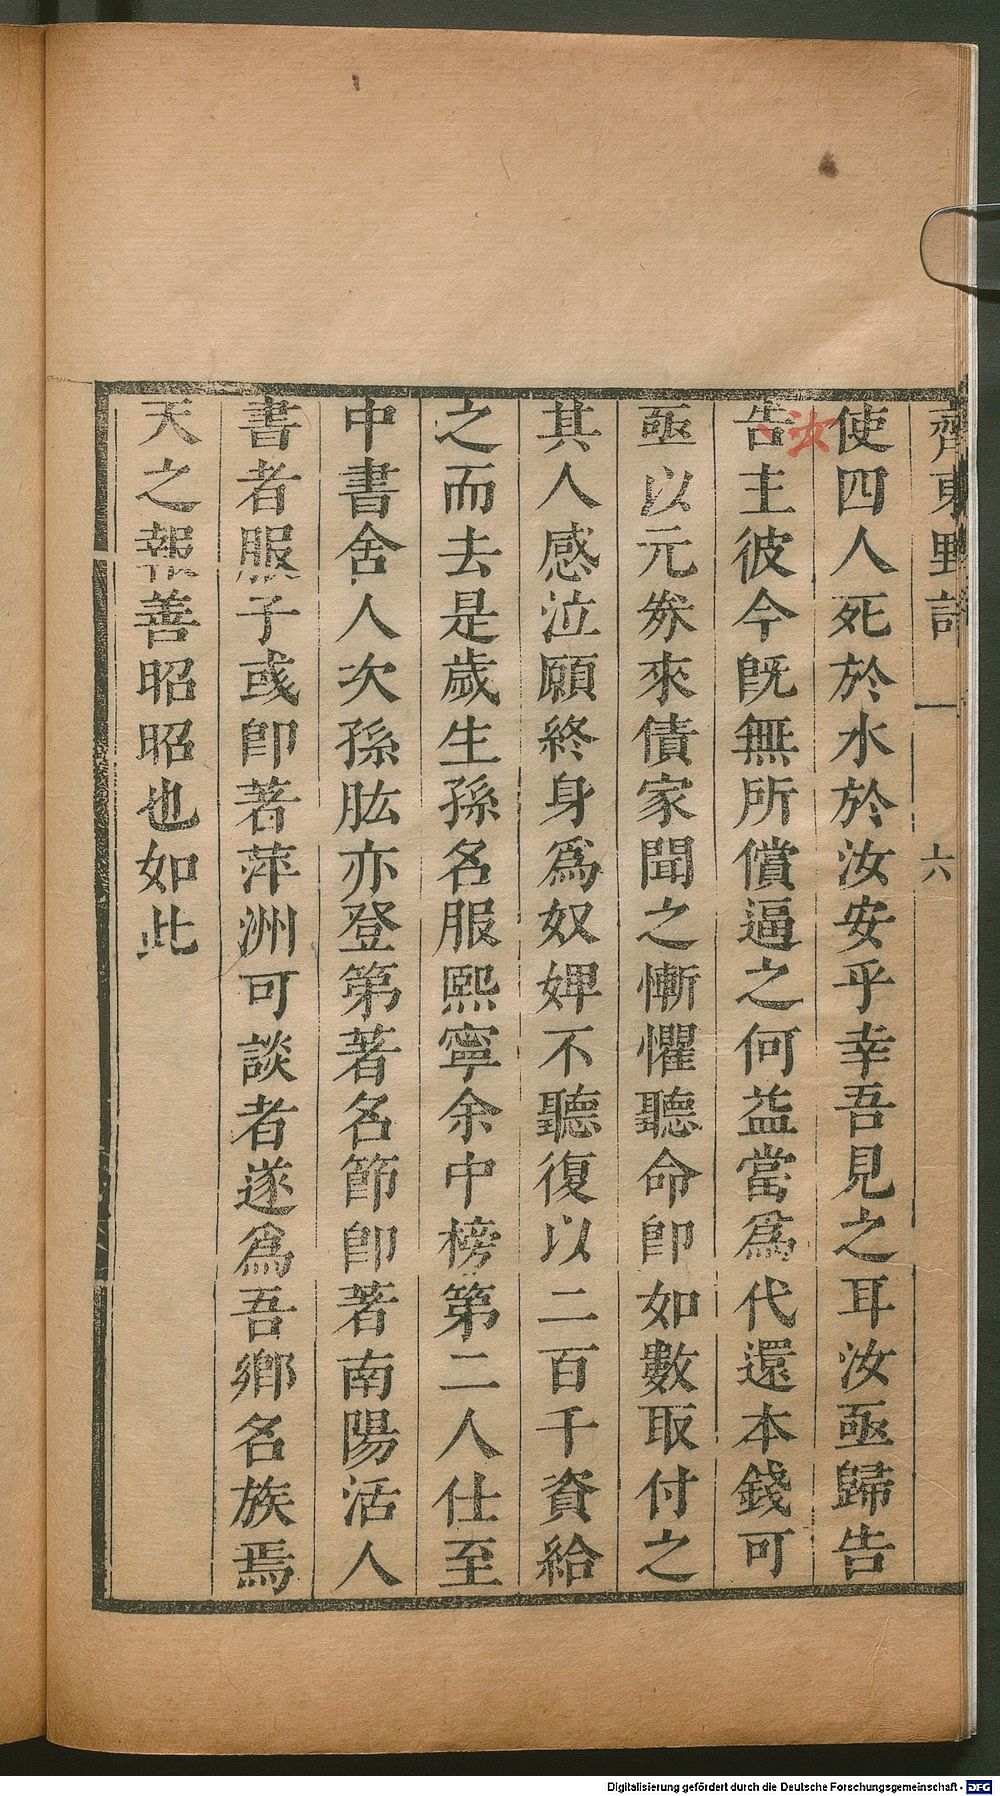 齊東野語 一 六
使四人死於水於汝安乎幸吾見之耳汝亟歸告
汝
告主彼今旣無所償逼之何益當爲代還本錢可
亟以元劵來債家聞之慚懼聽命卽如數取付之
其人感泣願終身爲奴婢不聽復以二百千資給
之而去是歲生孫名服熙寧余中榜第二人仕至
中書舍人次孫肱亦登第著名節卽著南陽活人
書者服子彧卽著萍洲可談者遂爲吾鄉名族焉
天之報善昭昭也如此
Digitalisierung gefördert durch die Deutsche Forschungsgemeinschaft - DFG